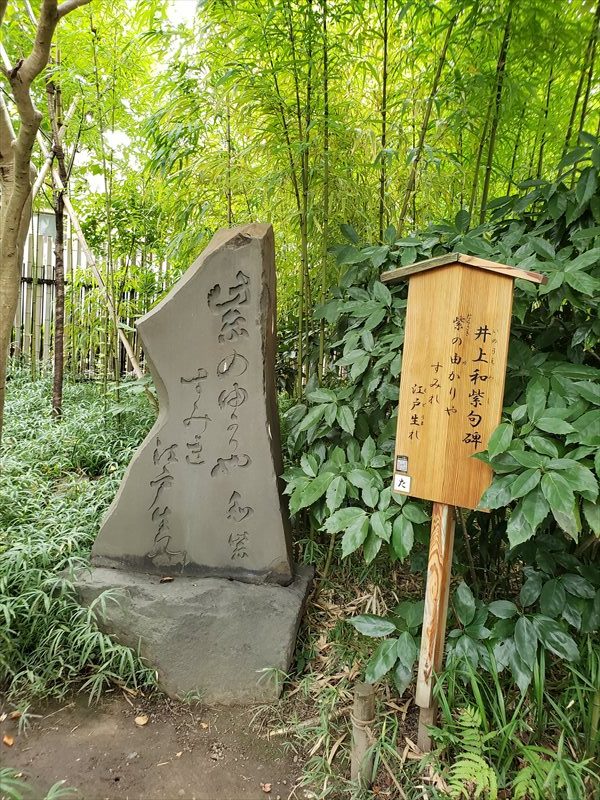 紫のゆかりや
すみれ
江戸生れ
和紫
井上和紫句碑
紫の由かりや
すみれ
江戸生れ
た